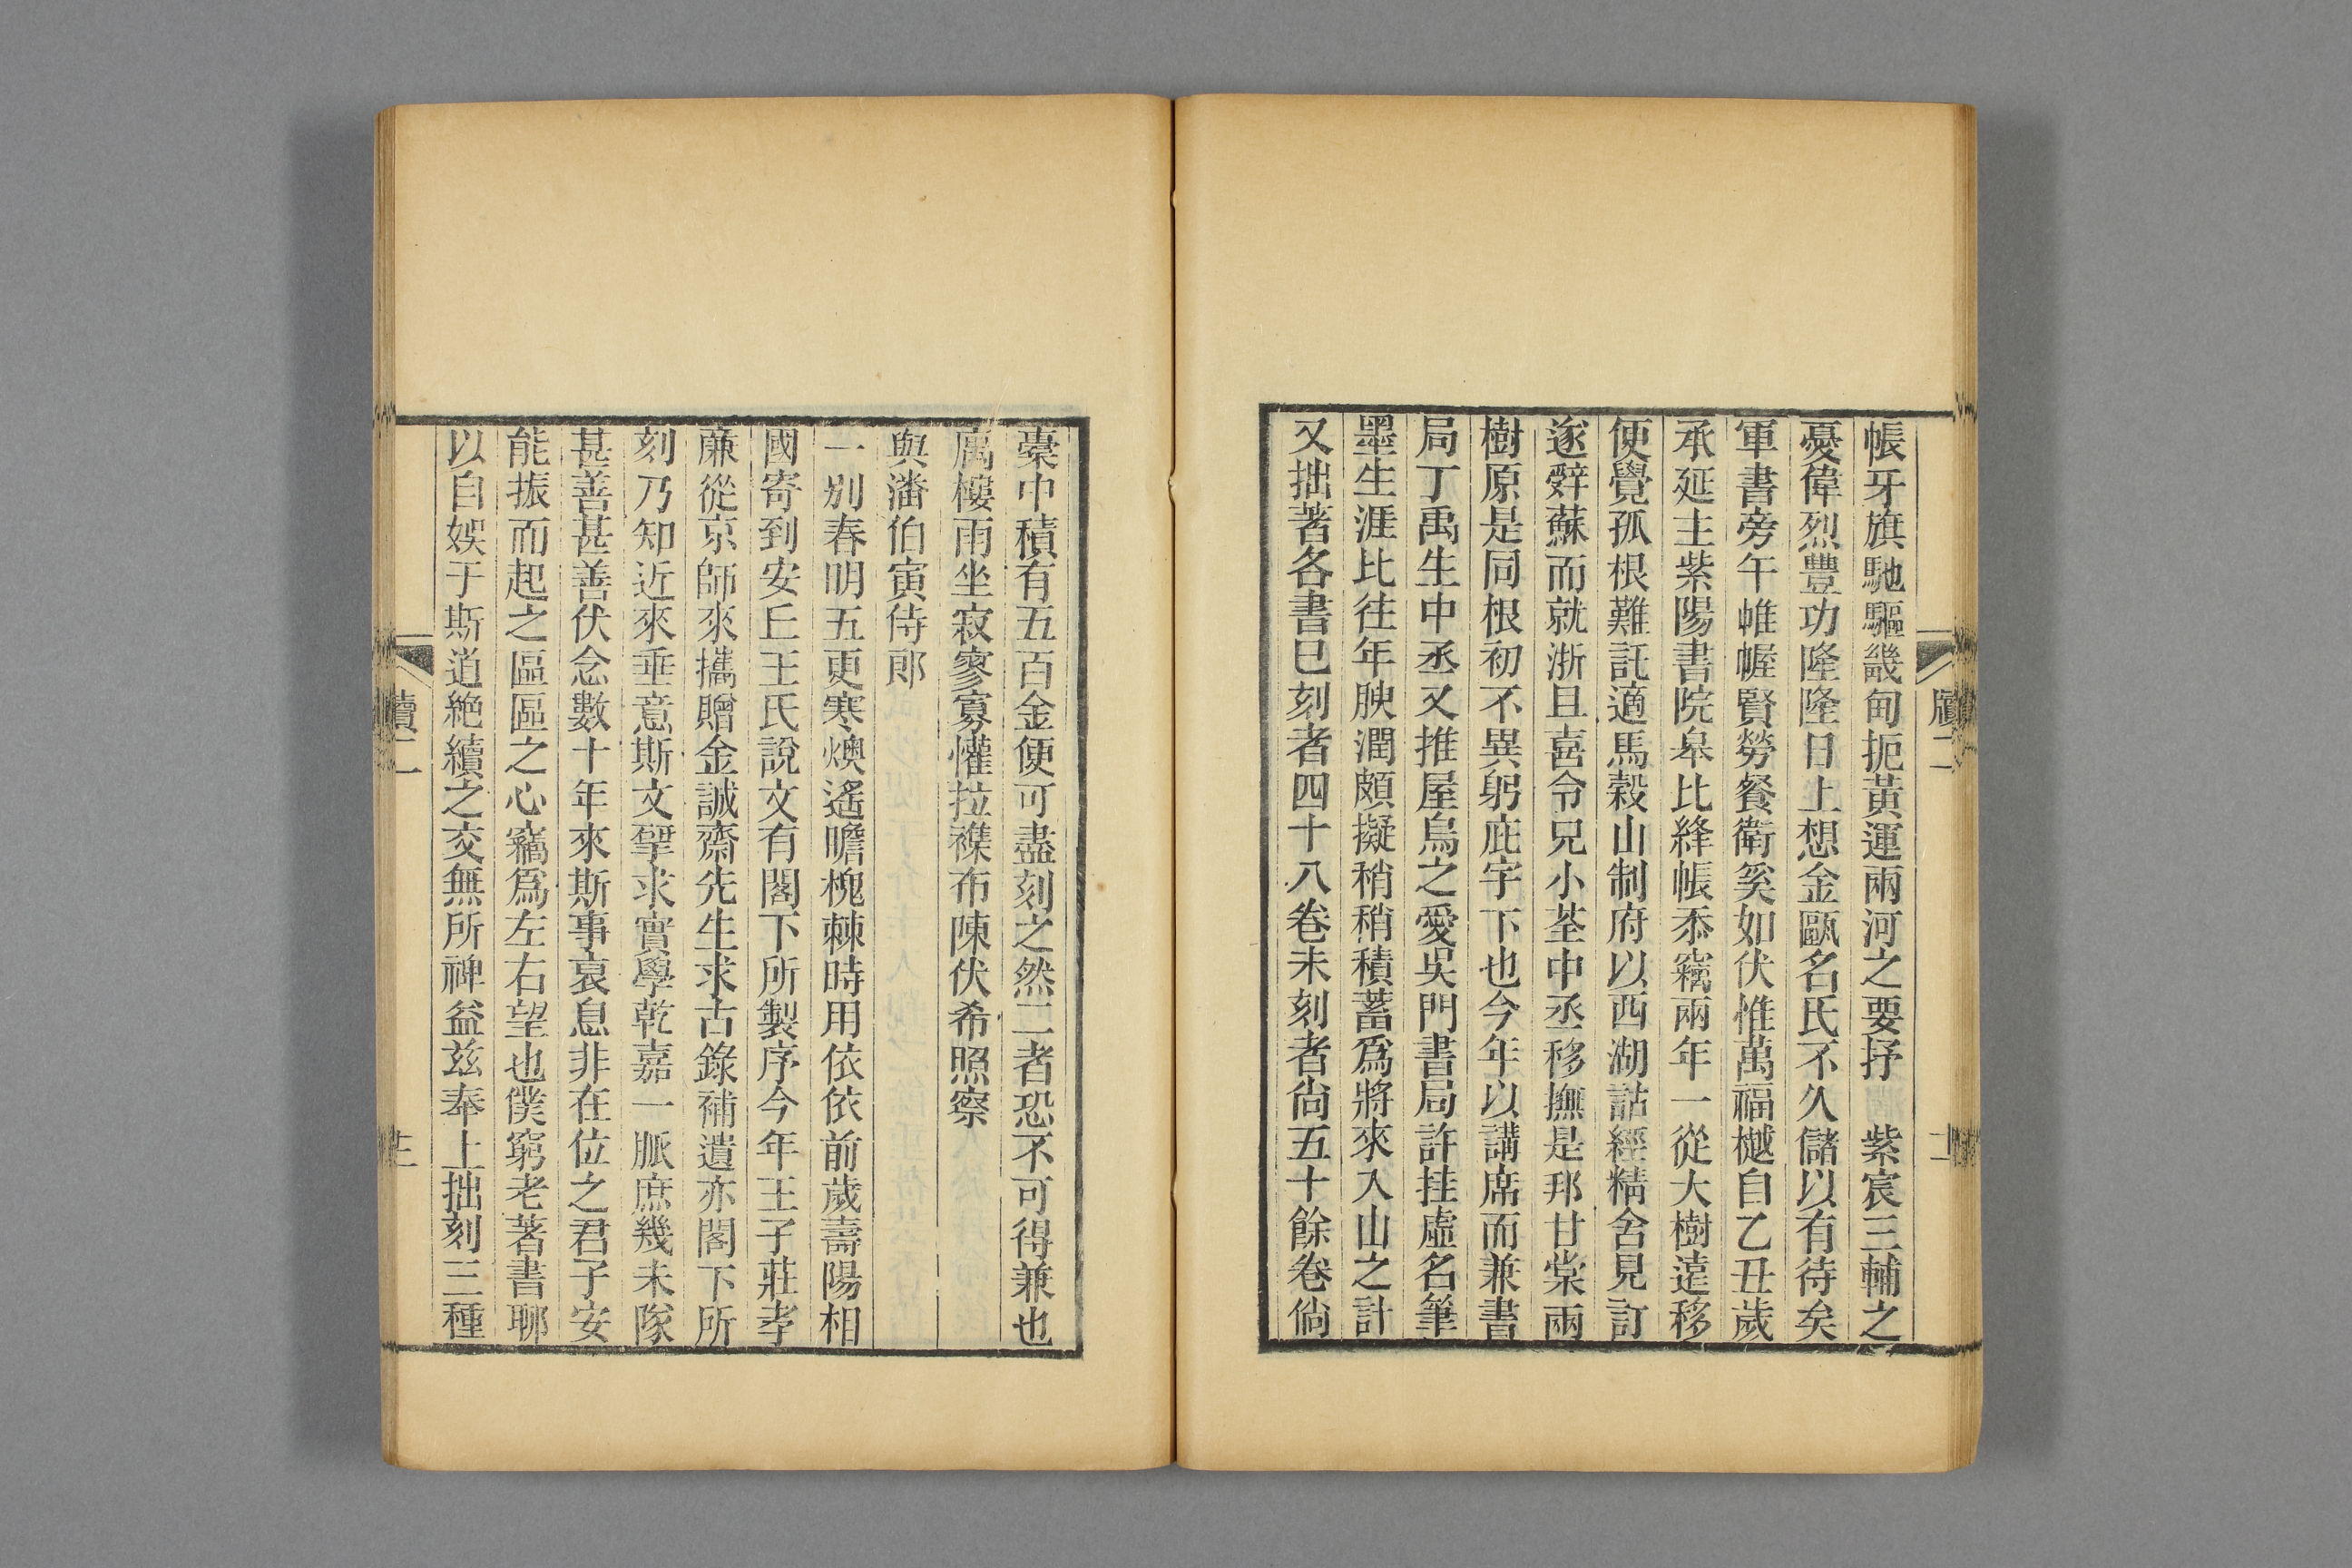 帳牙旗馳驅畿甸扼黃運兩河之要抒　紫宸三輔之
憂偉烈豐功隆隆日上想金甌名氏不久儲以有待矣
軍書旁午帷幄賢勞餐衛奚如伏惟萬福樾自乙丑歲
承延主紫陽書院皋比絳帳忝竊兩年一從大樹遠移
便覺孤根難託適馬穀山制府以西湖詁經精舍見訂
遂辤蘇而就浙且喜令兄小荃中丞移撫是邦甘棠兩
樹原是同根初不異躬庇宇下也今年以講席而兼書
局丁禹生中丞又推屋烏之愛吳門書局許挂虛名筆
墨生涯比往年腴潤頗擬稍稍積蓄爲將來入山之計
又拙著各書已刻者四十八卷未刻者尙五十餘卷倘
牘二
橐中積有五百金便可盡刻之然二者恐不可得兼也
寓樓雨坐寂寥寡懽拉襍布陳伏希照察
與潘伯寅侍郎
一別春明五更寒燠遙瞻槐棘時用依依前歲壽陽相
國寄到安丘王氏說文有閣下所製序今年王子莊孝
廉從京師來攜贈金誠齋先生求古錄補遺亦閣下所
刻乃知近來垂意斯文揅求實學乾嘉一脈庶幾未隊
甚善甚善伏念數十年來斯事衰息非在位之君子安
能振而起之區區之心竊爲左右望也僕窮老著書聊
以自娛于斯道絶續之交無所裨益兹奉上拙刻三種
牘二